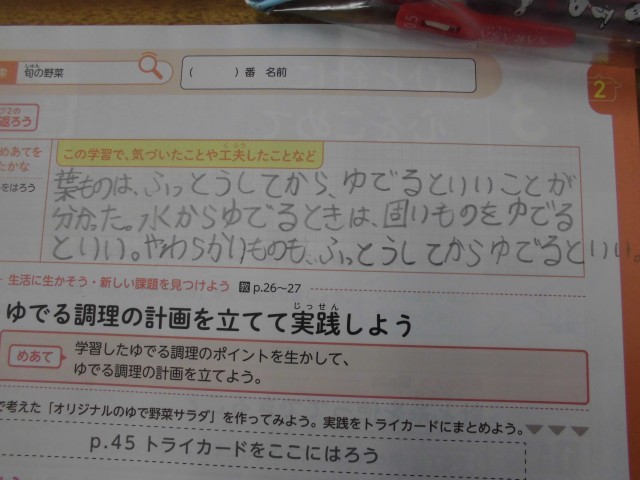 旬の野菜
( ) 番 名前
2
この学習で、気づいたことや工夫したことなど
めあてを
たかな
をはろう
葉ものは、ふっとうしてから、ゆでるといいことが
分かった。水からゆでるときは、固いものをゆでる
といい。やわらかいものも、ふっとうしてからゆでるといい。
生活に生かそう・新しい課題を見つけよう 教 p.26〜27
ゆでる調理の計画を立てて実践しよう
めあて 学習したゆでる調理のポイントを生かして、
ゆでる調理の計画を立てよう。
で考えた「オリジナルのゆで野菜サラダ」を作ってみよう。実践をトライカードにまとめよう。
p.45 トライカードをここにはろう